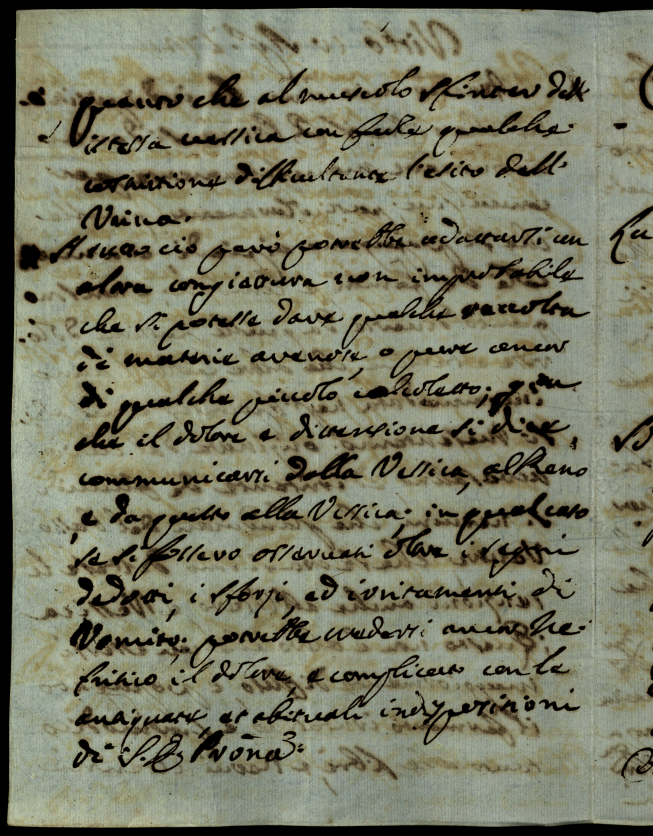 quanto che al muscolo sfinter dell'
istessa vessica con farle qualche
costrittione difficultante l'esito dell'
Urina.
A tutto ciò però potrebbe adattarsi un
altra congiettura non improbabile
che si potesse dare qualche raccolta
di materie arenose, o pure ancor
di qualche piccolo calcoletto;
che il dolore e distensione si dice
communicarsi dalla Vessica, al Reno
e da questo alla Vessica; in qual caso
se si fossero osservati oltre i segni
dedotti, i sforzi, ed irritamenti di
Vomito; potrebbe credersi ancor Ne-
fritico il dolore, e complicato con le
antiquate, et abituali indisposizioni
di S. E. Prõna.